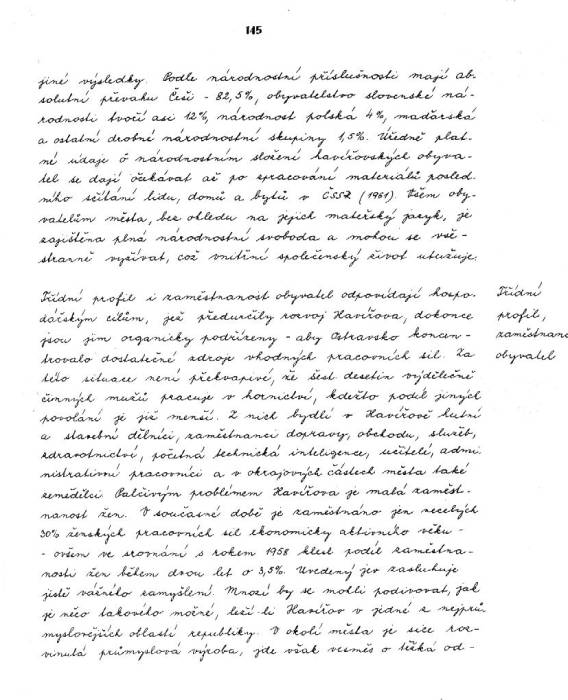 145
jiné výsledky. Podle národnostní příslušnosti mají ab-
solutní převahu Češi - 82,5%, obyvatelstvo slovenské ná-
rodnosti tvoří asi 12%, národnost polská 4%, maďarská
a ostatní drobné národnostní skupiny 1,5%. Úředně plat-
né údaje o národnostním složení havířovských obyva-
tel se dají očekávat až po zpracování materiálů posled-
ního sčítání lidu, domů a bytů v ČSSR (1961). Všem oby-
vatelům města, bez ohledu na jejich mateřský jazyk, je
zajištěna plná národnostní svoboda a mohou se vše-
stranně vyžívat, což vnitřní společenský život utužuje.
Třídní profil i zaměstnanost obyvatel odpovídají hospo-
dářským cílům, jež předurčily rozvoj Havířova, dokonce
jsou jim organicky podřízeny - aby Ostravsko koncen-
trovalo dostatečné zdroje vhodných pracovních sil. Za
této situace není překvapivé, že šest desetin výdělečně
činných mužů pracuje v hornictví, kdežto podíl jiných
povolání je již menší. Z nich bydlí v Havířově hutní
a stavební dělníci, zaměstnanci dopravy, obchodu, služeb,
zdravotnictví, početná technická inteligence, učitelé, admi
nistrativní pracovníci a v okrajových částech města také
zemědělci. Palčivým problémem Havířova je malá zaměst-
nanost žen. V současné době je zaměstnáno jen necelých
30% ženských pracovních sil ekonomicky aktivního věku -
- ovšem ve srovnání s rokem 1958 klesl podíl zaměstna-
nosti žen během dvou let o 3,5%. Uvedený jev zasluhuje
jistě vážného zamyšlení. Mnozí by se mohli podivovat, jak
je něco takového možné, leží-li Havířov v jedné z nejprů
myslovějších oblastí republiky. V okolí města je sice roz-
vinutá průmyslová výroba, jde však vesměs o těžká od-
Třídní
profil,
zaměstnano
obyvatel